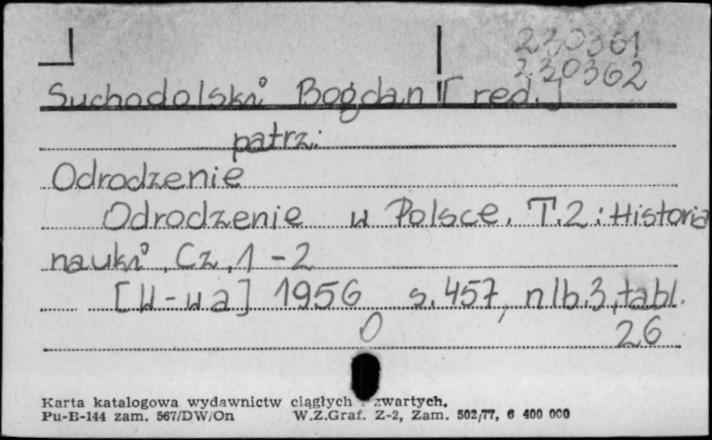 230361
230362
Suchodolski Bogdan [red.]
patrz:
Odrodzenie
Odrodzenie w Polsce. T.2: Historia
nauki. Cz. 1-2
[W-wa] 1956 s. 457, nlb. 3, tabl.
26
Karta katalogowa wydawnictw ciągłych i zwartych.
Pu-B-144 zam. 567/DW/On W.Z.Graf. Z-2, Zam. 502/77, 6 400 000